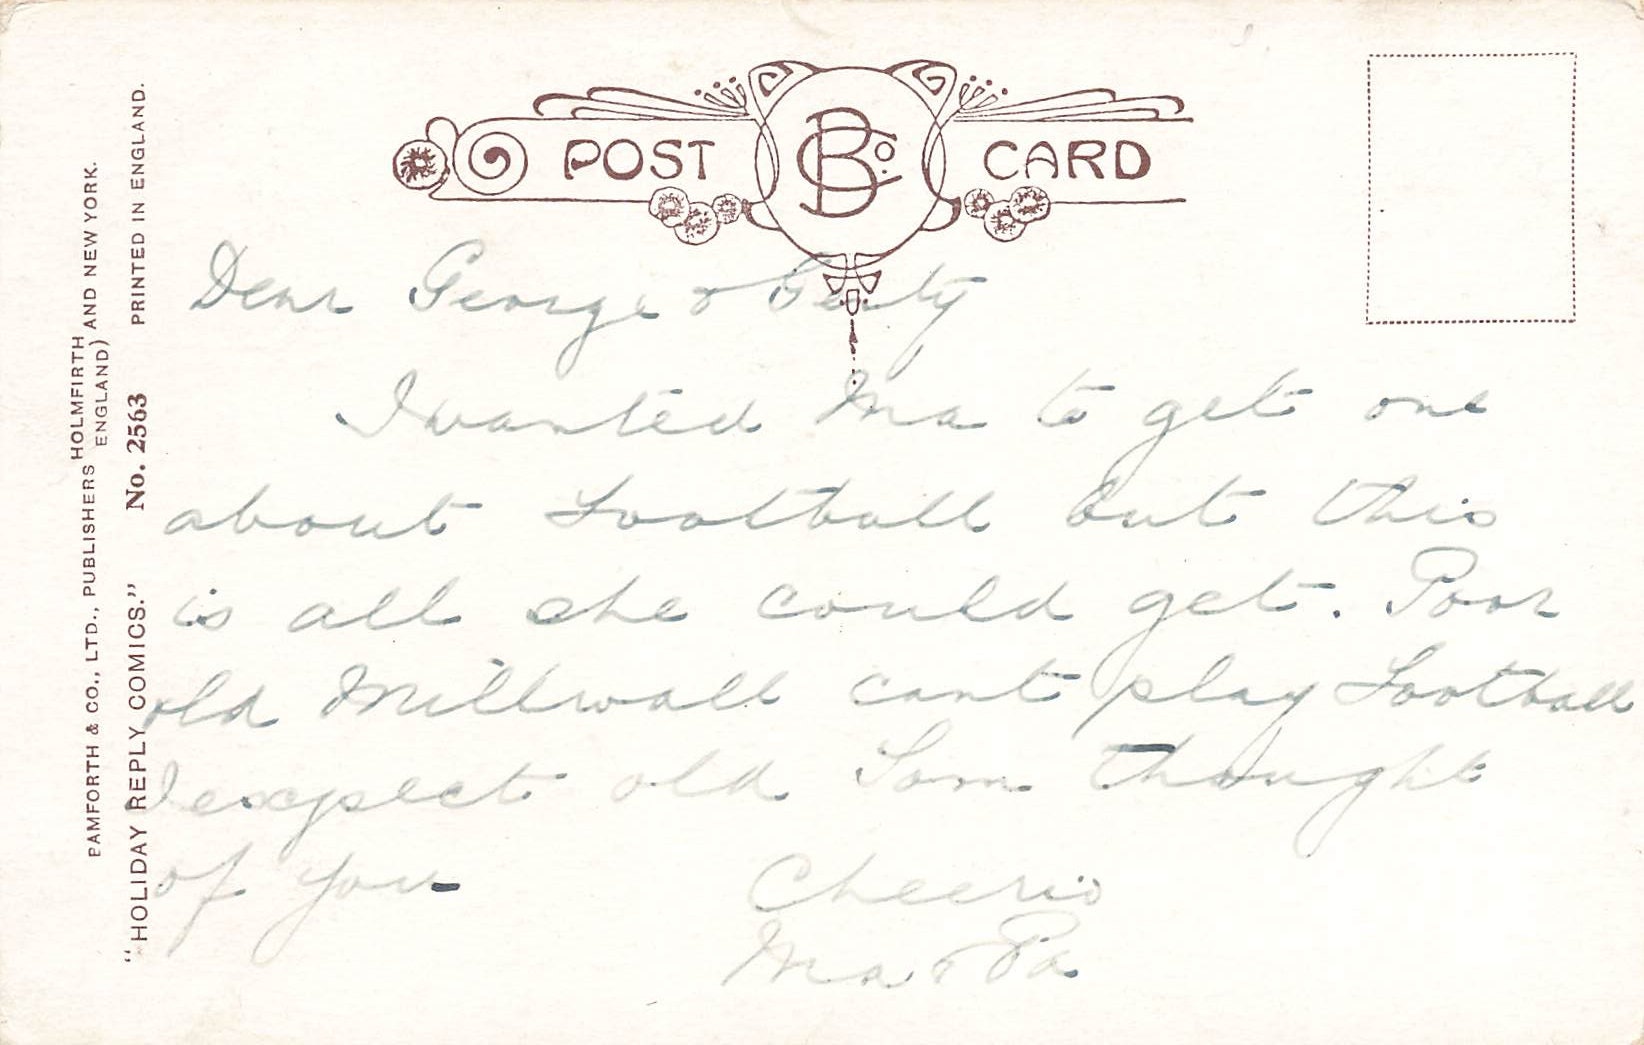 POST BCo. CARD
Dear George & Gerty
I wanted Ma to get one
about Football but this
is all she could get. Poor
old Millwall cant play Football
I expect old Sam thought
of you
Cheerio
Ma & Pa
PAMFORTH & CO., LTD., PUBLISHERS HOLMFIRTH AND NEW YORK.
ENGLAND)
"HOLIDAY REPLY COMICS." No. 2563 PRINTED IN ENGLAND.